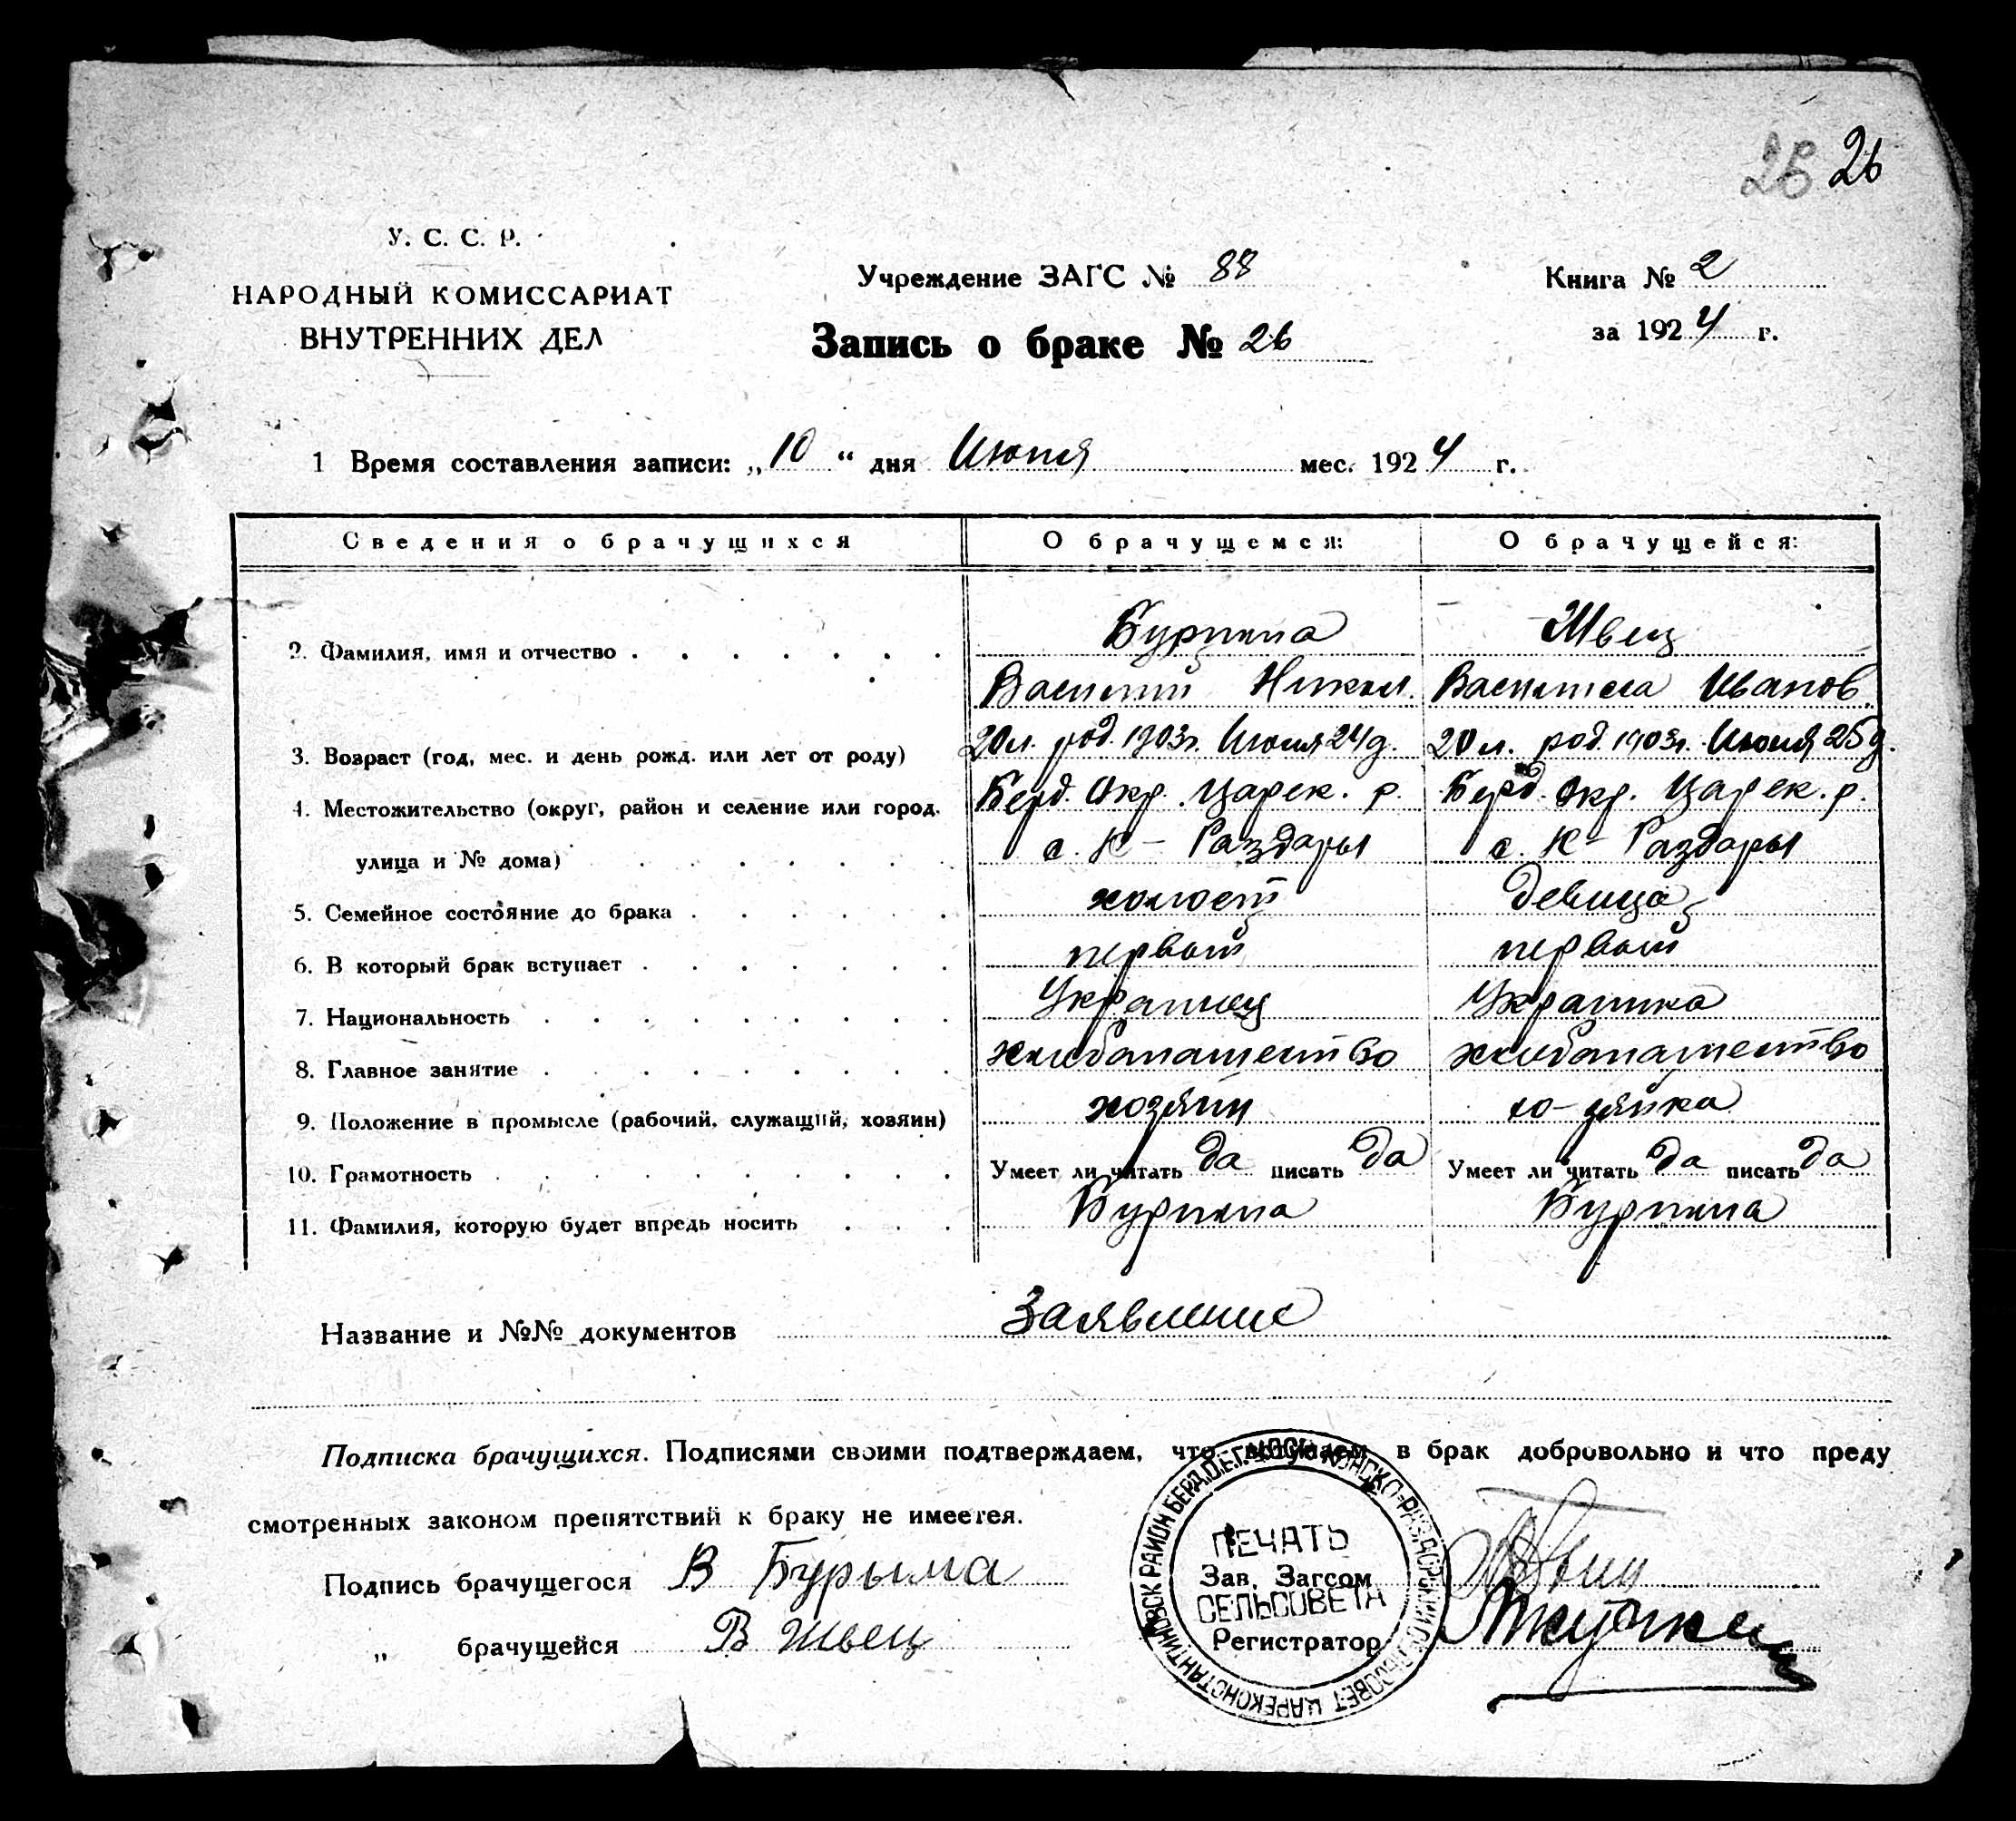 26 26
У. С. С. Р.
НАРОДНЫЙ КОМИССАРИАТ
ВНУТРЕННИХ ДЕЛ
Учреждение ЗАГС № 88
Запись о браке № 26
Книга № 2
за 1924 г.
1 Время составления записи: „10“ дня Июня мес. 1924 г.
Сведения о брачущихся О брачущемся: О брачущейся:
Бурыма Швец
2. Фамилия, имя и отчество
Василий Никол. Василиса Иванов
3. Возраст (год, мес. и день рожд. или лет от роду) 20 л. род. 1903 г. Июля 24 д. 20 л. род. 1903 г. Июля 25 д.
4. Местожительство (округ, район и селение или город, Берд. Окр. Царек. р. Берд. Окр. Царек. р.
улица и № дома) с. К - Раздоры с. К - Раздоры
5. Семейное состояние до брака холост девица
6. В который брак вступает первый первый
7. Национальность Украинец Украинка
8. Главное занятие хлибопашество хлибопашество
9. Положение в промысле (рабочий, служащий, хозяин) хозяин хо-зяйка
10. Грамотность Умеет ли читать да писать да Умеет ли читать да писать да
11. Фамилия, которую будет впредь носить Бурыма Бурыма
Название и №№ документов Заявление
Подписка брачущихся. Подписями своими подтверждаем, что вступаем в брак добровольно и что преду
смотренных законом препятствий к браку не имеется.
Подпись брачущегося В Бурыма
„ брачущейся В Швец
Зав. Загсом
Регистратор
ПЕЧАТЬ
СЕЛЬСОВЕТА